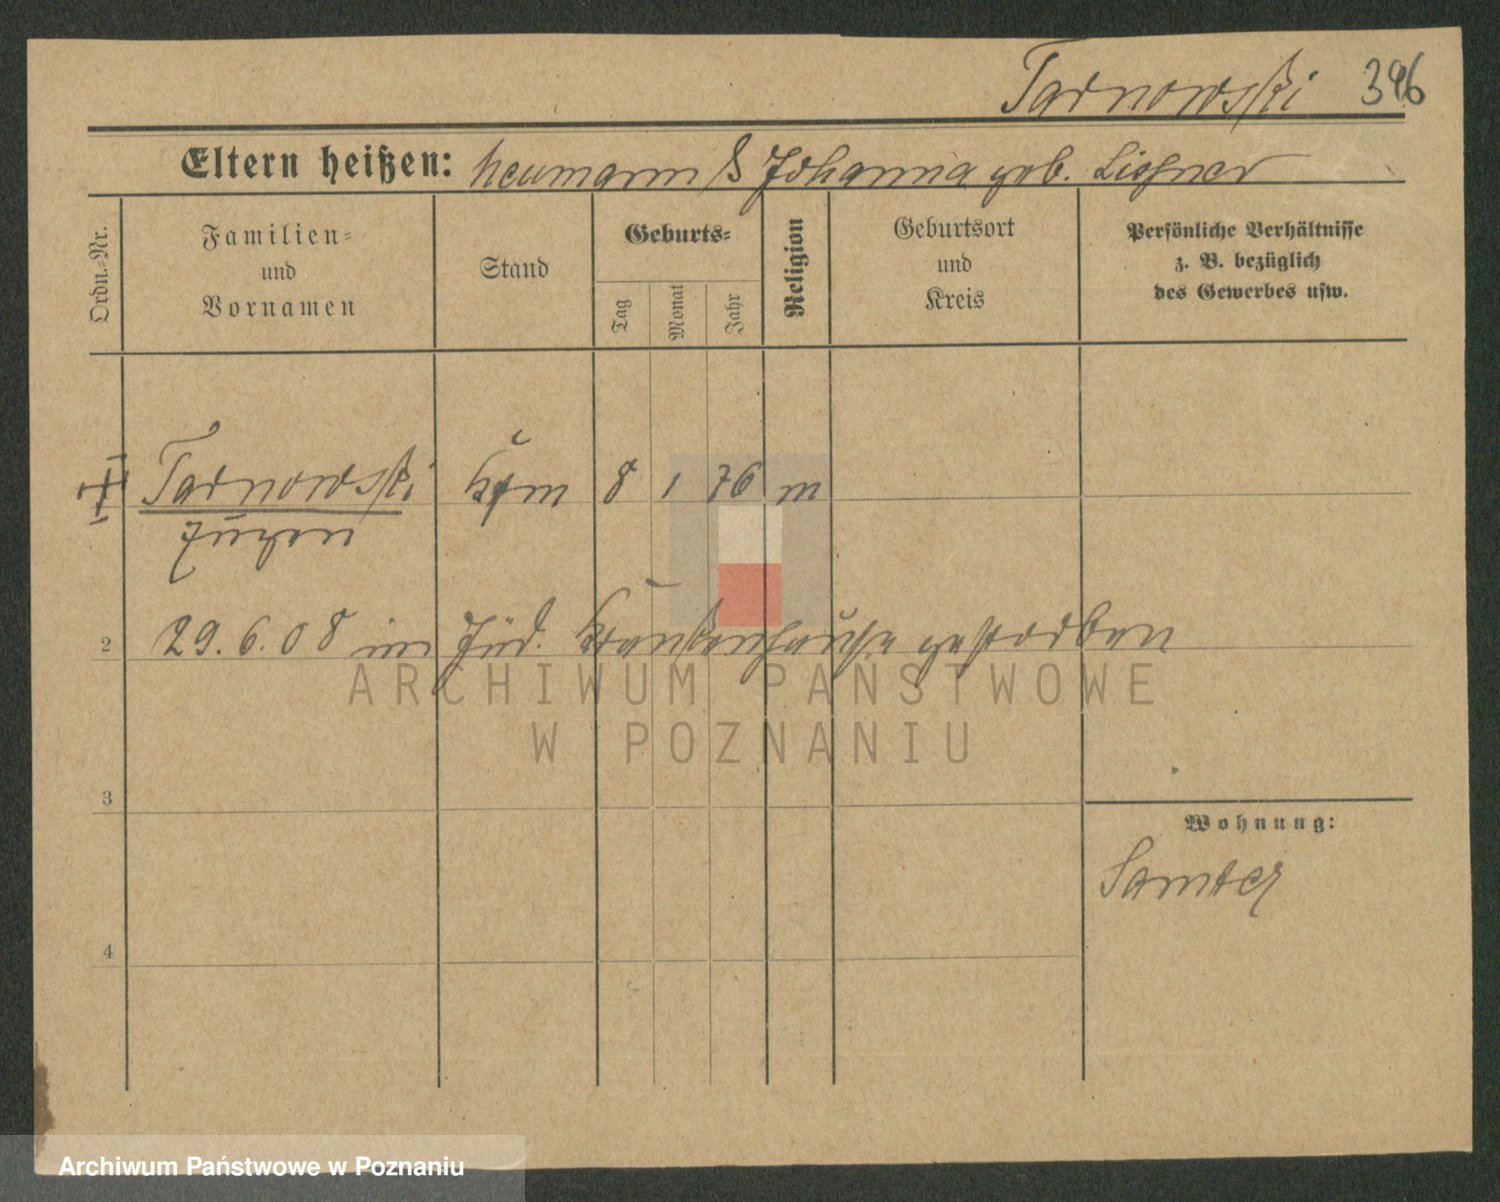 Tarnowski 396
Eltern heißen: Neumann & Johanna geb. Lissner
Ordn.-Nr.
Familien-
und
Vornamen
Stand
Geburts-
Tag
Monat
Jahr
Religion
Geburtsort
und
Kreis
Persönliche Verhältnisse
z. B. bezüglich
des Gewerbes usw.
Tarnowski Kfm 8 1 76 m
Eugen
2 29.6.08 im Jüd. Krankenhause gestorben
ARCHIWUM PAŃSTWOWE
W POZNANIU
3
Wohnung:
Samter
4
Archiwum Państwowe w Poznaniu